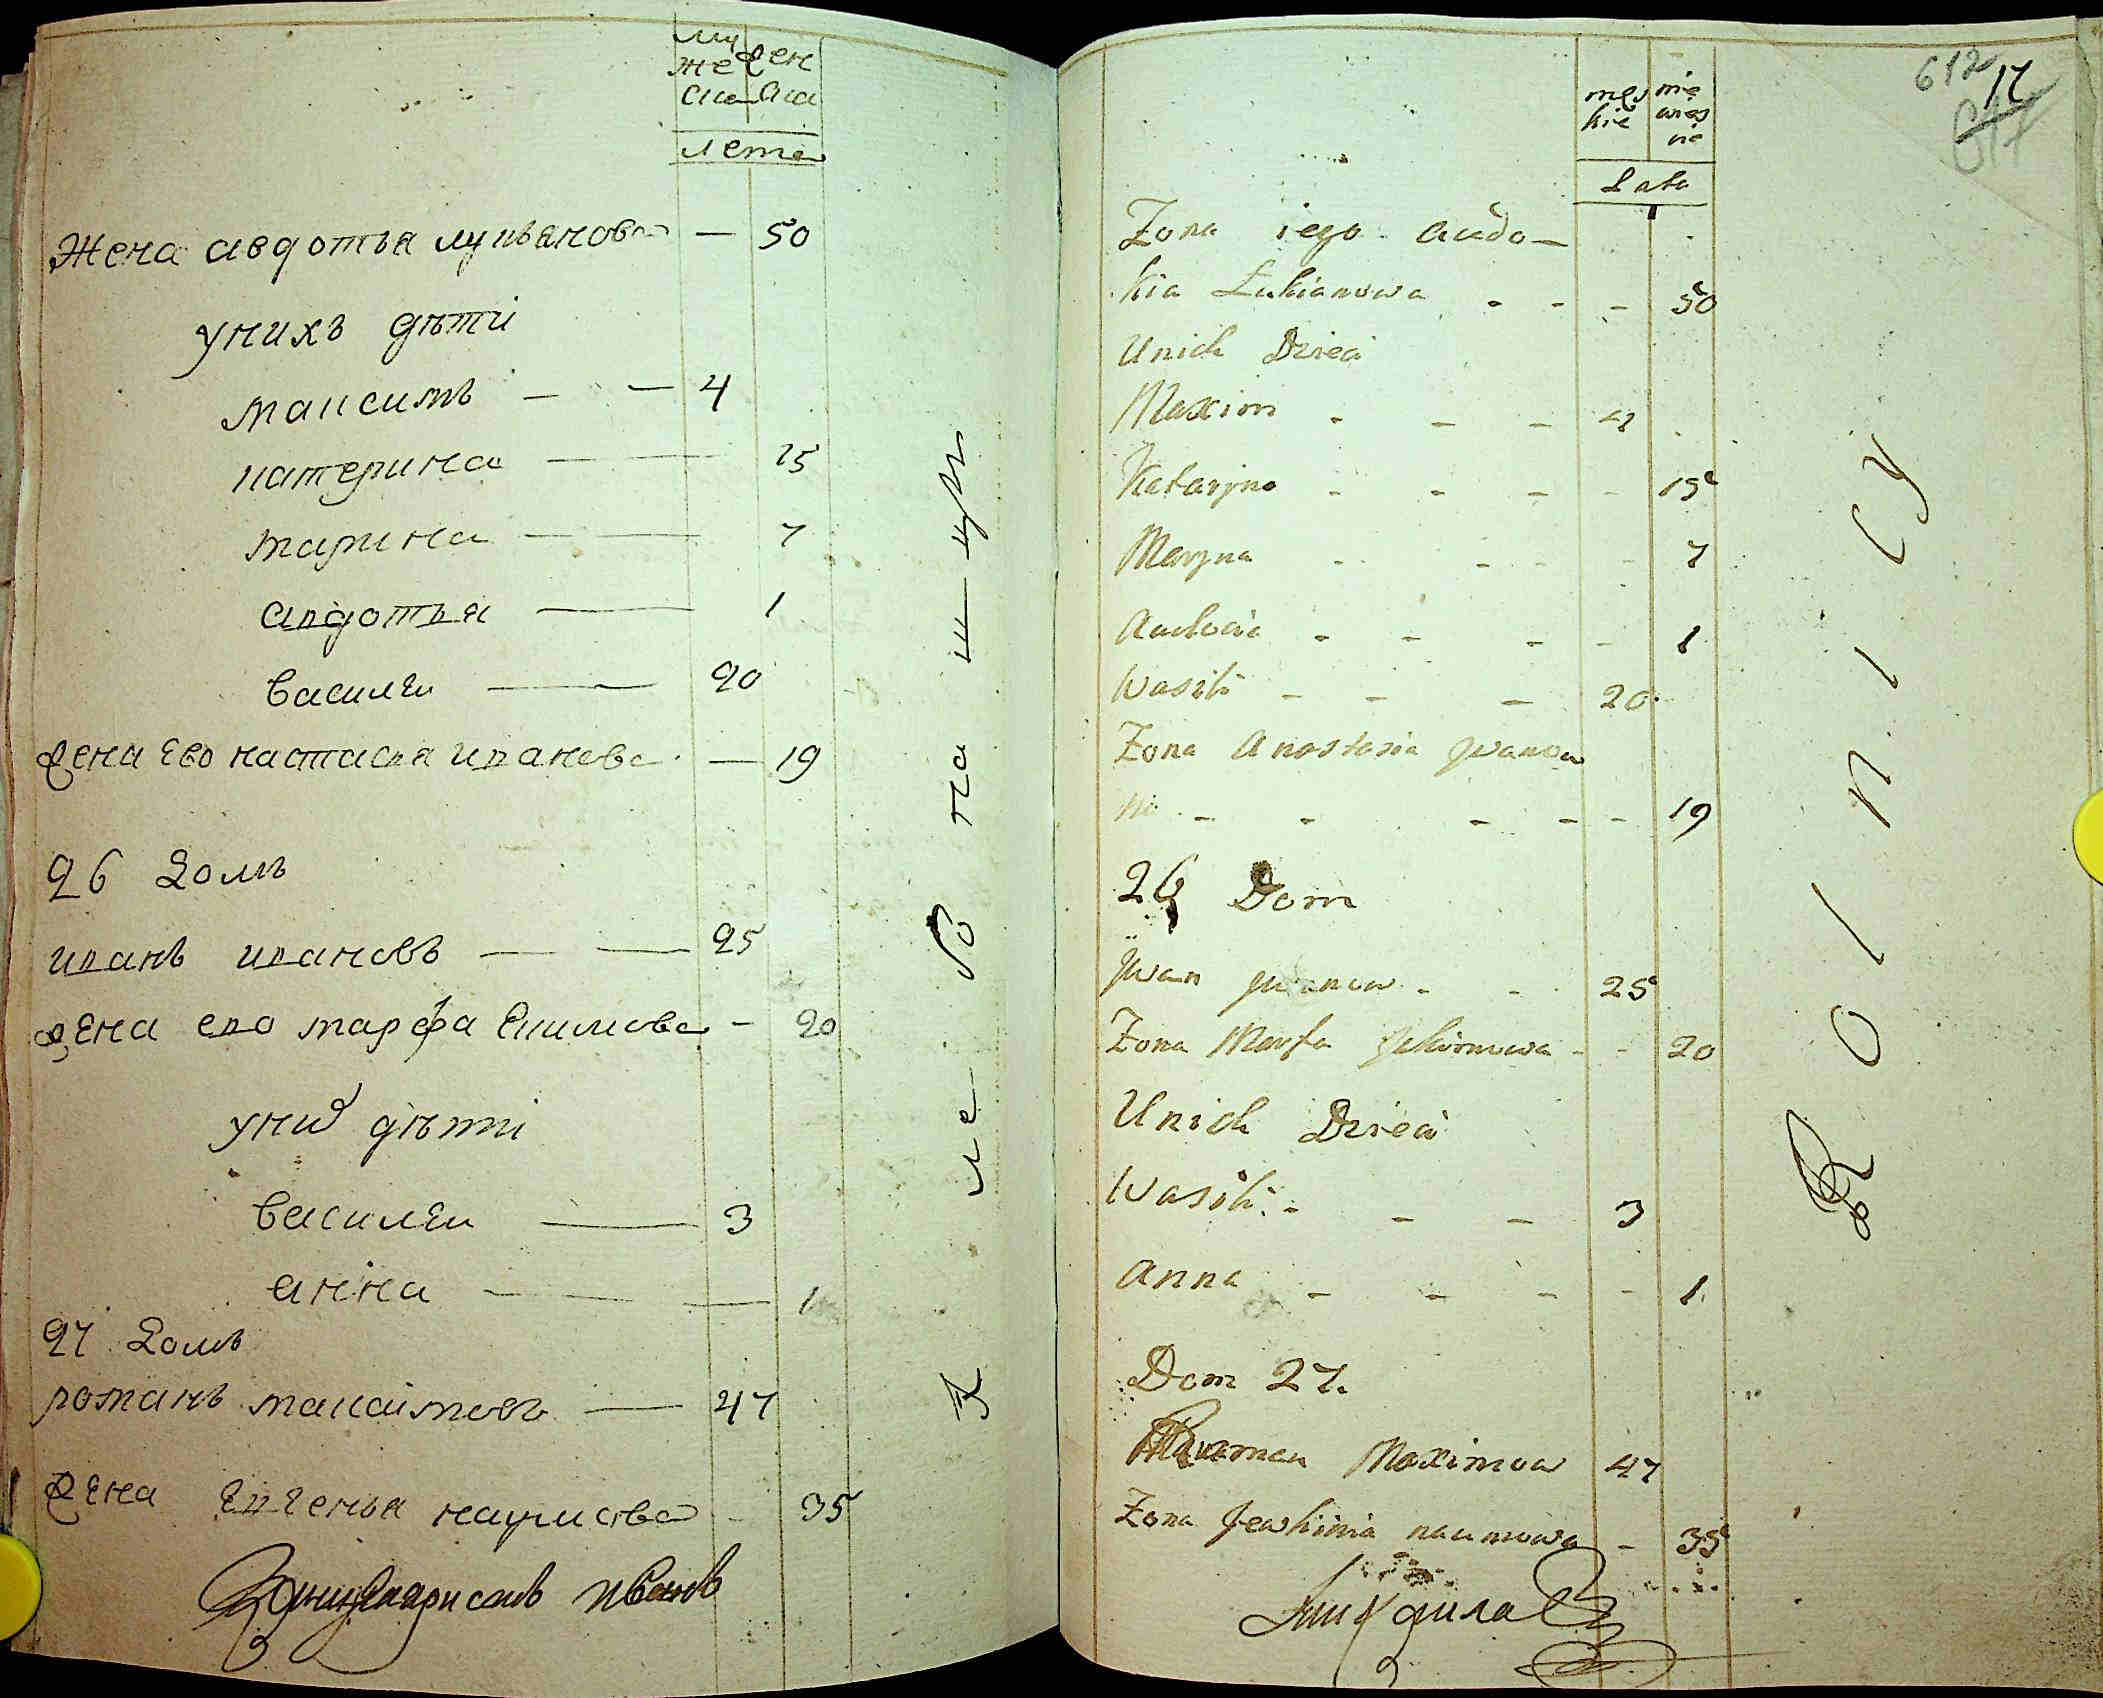 му же ские
жен ские
лета
Жена авдотья лукьянова — 50
унихъ дѣти
максимъ — — 4
катерина — 15
марина — 7
авдотья — 1
василеи — 20
жена Ево настасья иванова — 19
26 Домъ
иванъ ивановъ — — 25
жена ево марфа Екимова - 20
униx дѣти
василеи — 3
анна — — — 1
27 Домъ
романъ максимовъ — 47
жена Евгенья наумова - 35
ивановъ
612 17
611
męs kie
nie wies cie
Lata
Zona iego Audo—
kia Łukianowa - - - 50
Unich Dzieci
Maxim - - - 4
Kataryna - - - - 15
Maryna - - - - 7
Audocia - - - - 1
Wasili - - - 20
Zona Anastasia Jwanow
na - - - - - 19
26 Dom
Jwan Jwanow - - 25
Zona Marfa Jekimowa - - 20
Unich Dzieci
Wasili - - - 3
Anna - - - - 1
Dom 27.
Roman Maximow 47
Zona Jewhinia naumowa - 35
Rolnicy